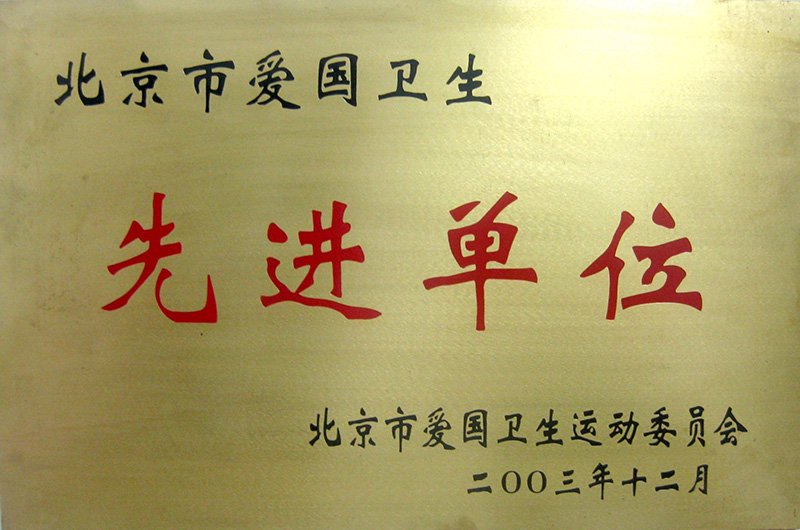 北京市爱国卫生
先进单位
北京市爱国卫生运动委员会
二OO三年十二月